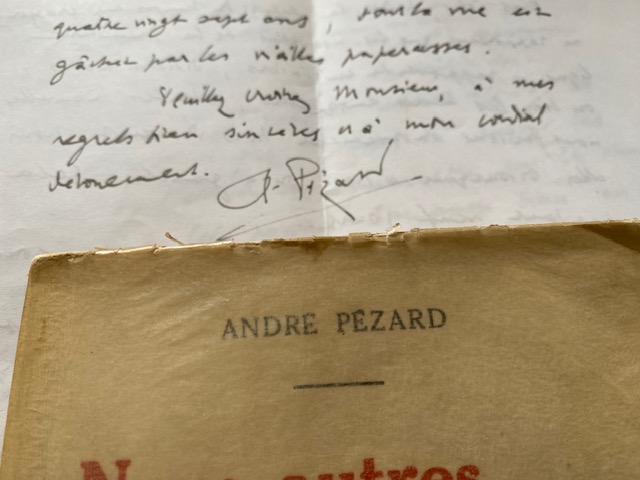 quatre vingt sept ans, toute me vie
gâchée par les vieilles paperasses.
Veuillez croire, Monsieur, à mes
regrets bien sincères et à mon cordial
dévouement. A. Pézard
ANDRÉ PÉZARD
Nous autres